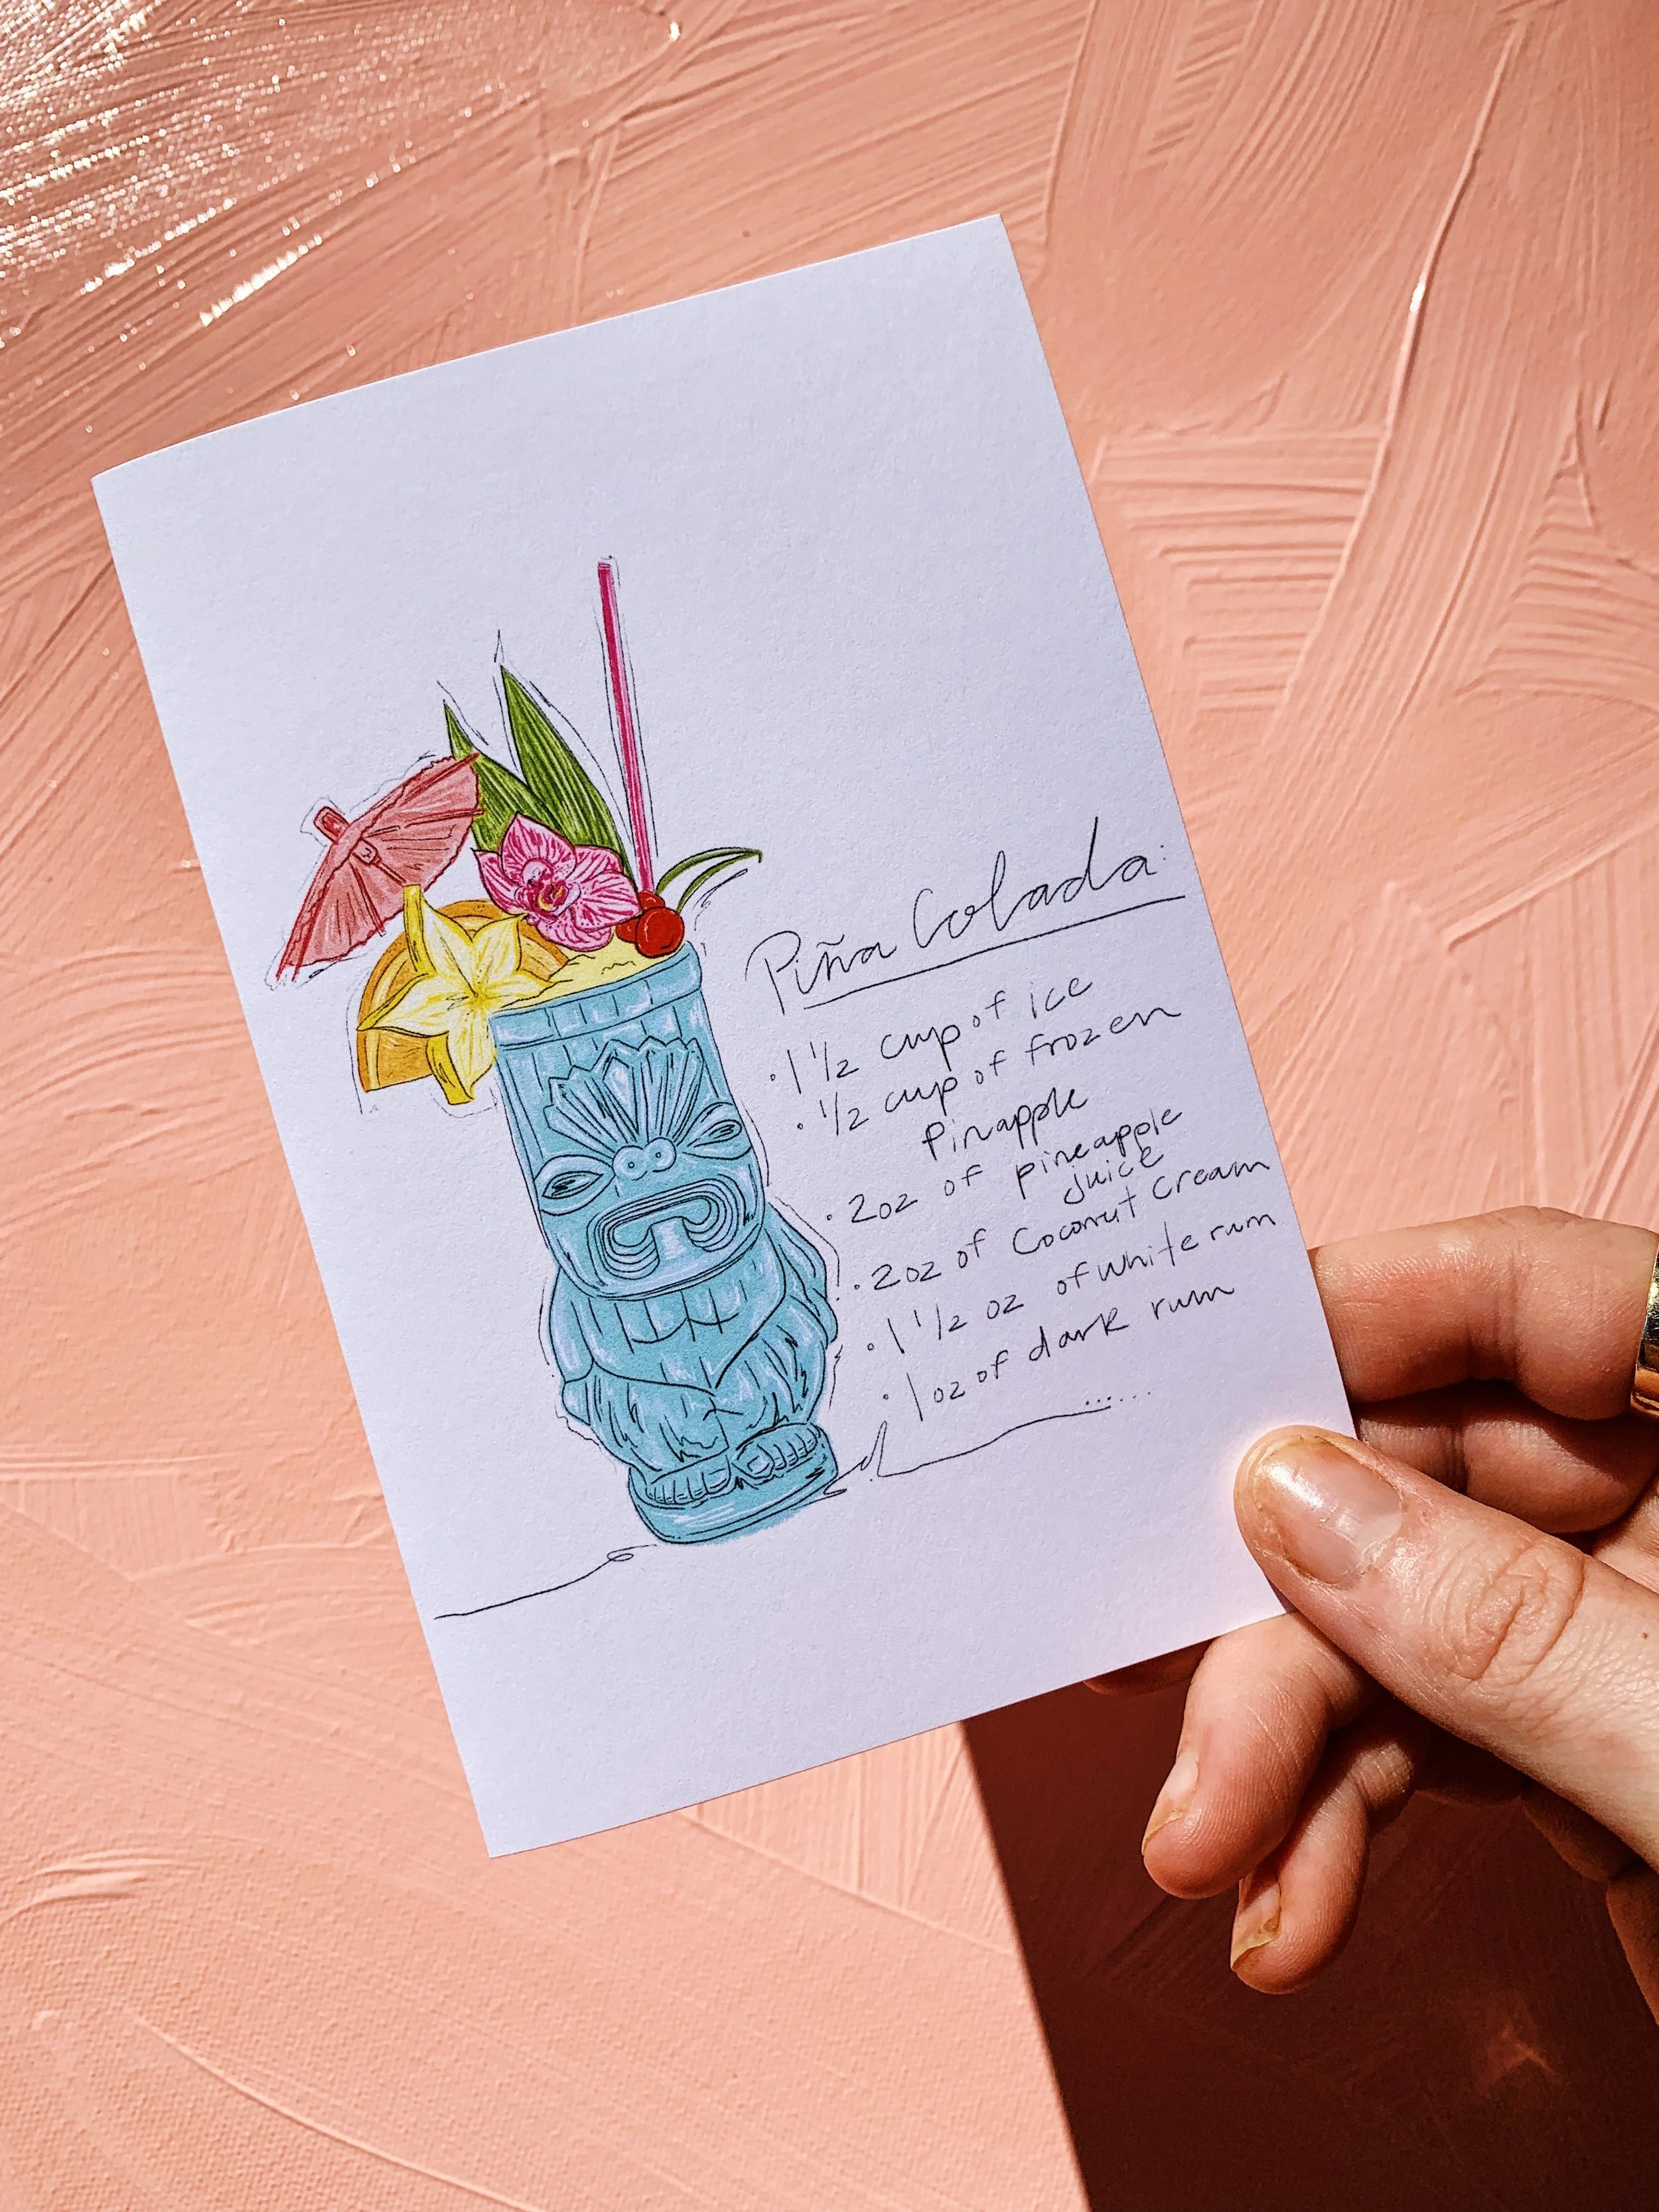 Piña Colada:
• 1 1/2 cup of ice
• 1/2 cup of frozen
pinapple
• 2oz of pineapple
juice
• 2oz of Coconut Cream
• 1 1/2 oz of white rum
• 1 oz of dark rum